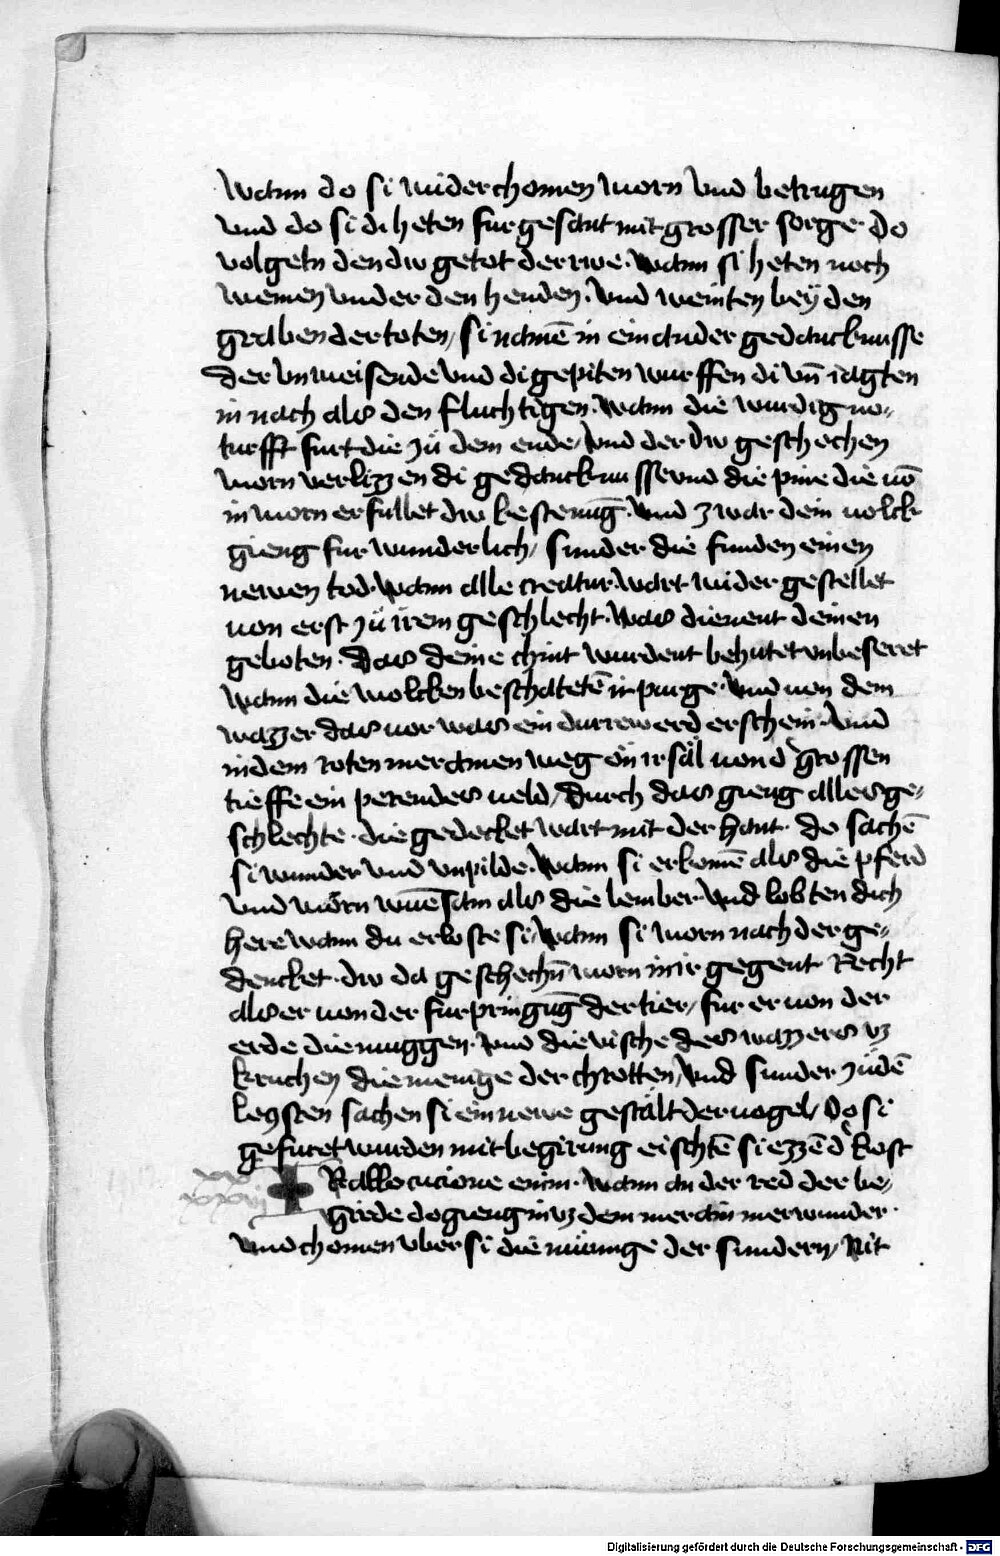 Wann do si widerchomen worn vnd betrugen
vnd do si di heten fur gesant mit grosser sorge do
volgetn den dw getot der rwe. Wann si heten noch
weinen vnder den henden. vnd weinten bey den
graben der toten, si namē in ein ander gedancknusse
der vnweisende vnd di gepiten wurffen di vn̄ iagten
in nach als den fluchtigen. Wann die wirdig no⸗
turfft furt die zů dem ende, vnd der dw geschechen
worn verlizzen di gedancknusse vnd die pine die vō
in worn erfullet dw kestenūg. vnd zwar dein volck
gieng fur wunderlich, sunder die funden einen
newen tod. Wann alle creatur wart wider gestellet
von erst zů irem geschlecht. Was dienent deinen
geboten. Das deine chint wurdent behutet vnbeseret
wann die wolcken beschatetē ir purge. vnd von dem
wazzer das vor was ein durre werd erschein. vnd
in dem roten mer ainen weg ön irsäl von d' grossen
tieffe ein perendes veld, durch das gieng alles ge⸗
schlechte. die gedecket wart mit der hant. do sachē
si wunder vnd vnpilde. Wann si erkomē als die pferd
vnd worn wūesam als die lember. vnd lobten dich
here wann du erlostes si, wann si worn nach der ge⸗
dencket. dw da geschechn̄ worn in ir gegent Recht
als er von der furpringūg der tier, fur er von der
erde die muggen. vnd die vische des wazzers vz
kruchen die menige der chrotten, vnd sunder zů dē
leysten sachen si ein newe gestält der vogel, Do si
gefuret wurden mit begirung eischtē si ezzē d' kost
xxvii Rallocucione enim. Wann an der red der be⸗
girde do gieng in vz dem mer ain merwunder.
vnd chomen vber si die münige der sundern, Nit
Digitalisierung gefördert durch die Deutsche Forschungsgemeinschaft - DFG